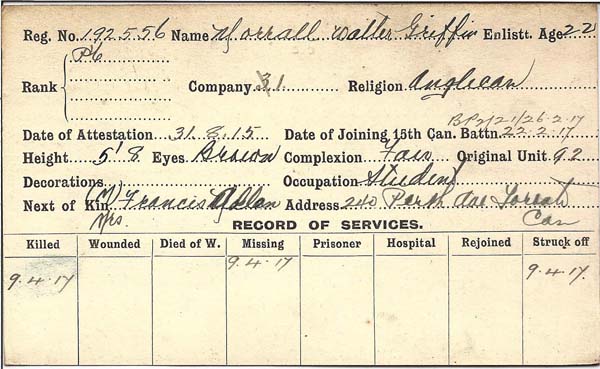 Reg. No. 192556 Name Worrall Walter Griffin Enlistt. Age 22
Rank Pte Company 31 Religion Anglican
BPz/21/26.2.17
Date of Attestation 31.8.15 Date of Joining 15th Can. Battn. 22.2.17
Height 5' 8 Eyes Brown Complexion Fair Original Unit 92
Decorations Occupation Student
Next of Kin (M) Mrs. Francis Address 240 Perth Ave Toronto Can
RECORD OF SERVICES.
Killed Wounded Died of W. Missing Prisoner Hospital Rejoined Struck off
9.4.17 9.4.17 9.4.17